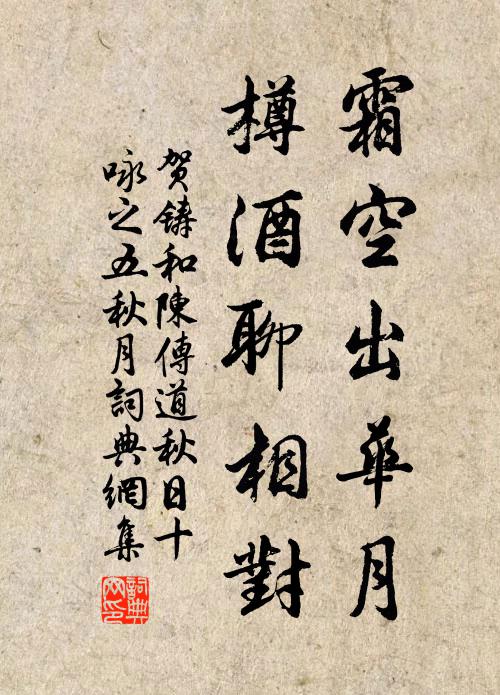 霜空出華月
樽酒聊相對
賀鑄和陳傅道秋日十
咏之五秋月詞典網集
詞典
网印